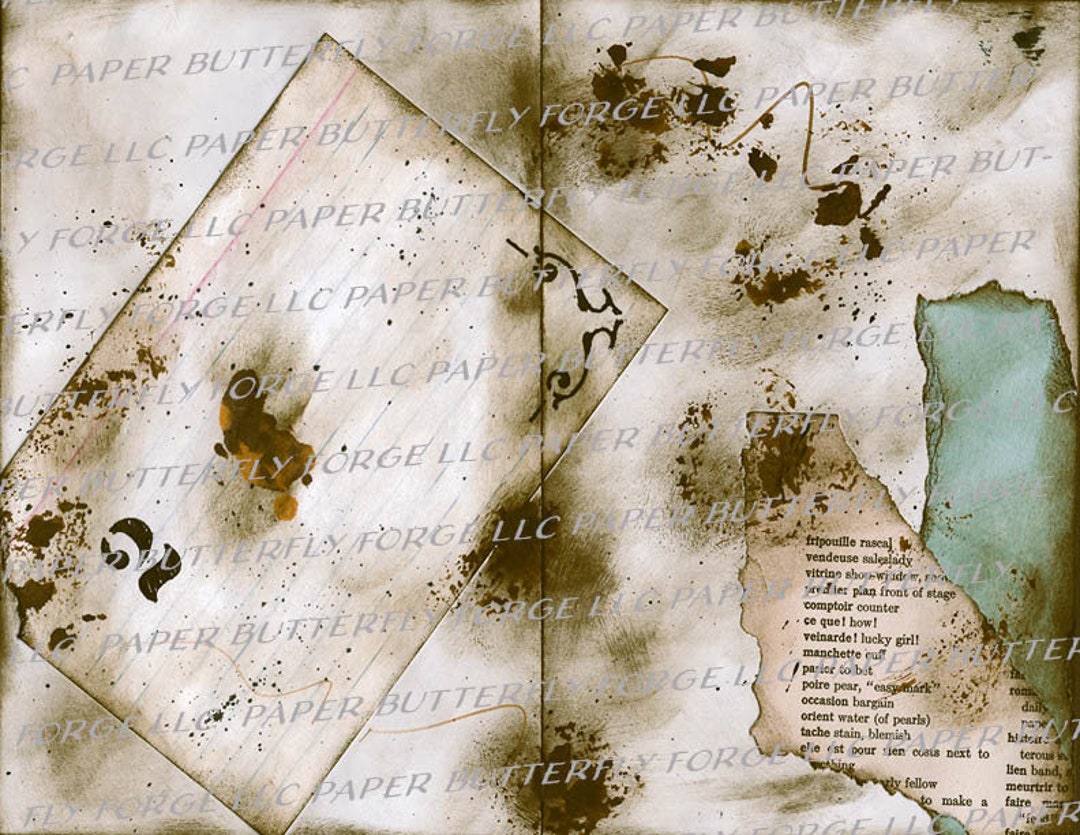 C PAPER BUTTERFLY FORGE LLC PAPER BUTTERFLY
RGE LLC PAPER BUTTERFLY FORGE LLC PAPER BUTTERFLY FORGE
Y FORGE LLC PAPER BUTTERFLY FORGE LLC PAPER BUT-
ERFLY FORGE LLC PAPER BUTTERFLY FORGE LLC PAPER
BUTTERFLY FORGE LLC PAPER BUTTERFLY FORGE LLC
BUTTERFLY FORGE LLC PAPER BUTTERFLY FORGE LLC
PAPER BUTTERFLY FORGE LLC PAPER BUTTERFLY
LLC PAPER BUTTERFLY FORGE LLC PAPER BUTTERFLY
FORGE LLC PAPER BUTTERFLY FORGE LLC PAPER
FLY FORGE LLC PAPER BUTTERFLY FORGE LLC PAPER
fripouille rascal
vendeuse saleslady
vitrine shop-window,
premier plan front of stage
comptoir counter
ce que! how!
veinarde! lucky girl!
manchette cuff
parier to bet
poire pear, "easy mark"
occasion bargain
orient water (of pearls)
tache stain, blemish
elle est pour rien costs next to
nothing
fellow
to make a
daily
lien band,
meurtrir to
faire